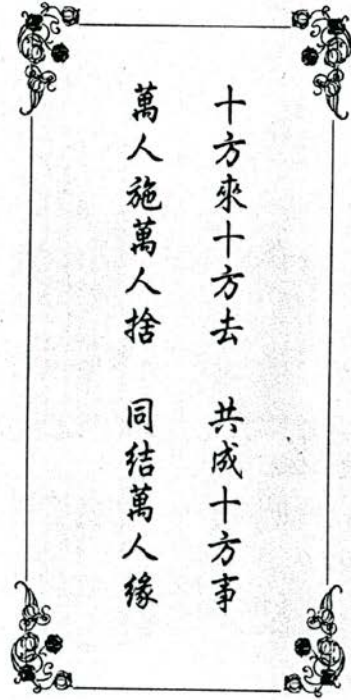 十方來十方去　共成十方事
萬人施萬人捨　同結萬人緣